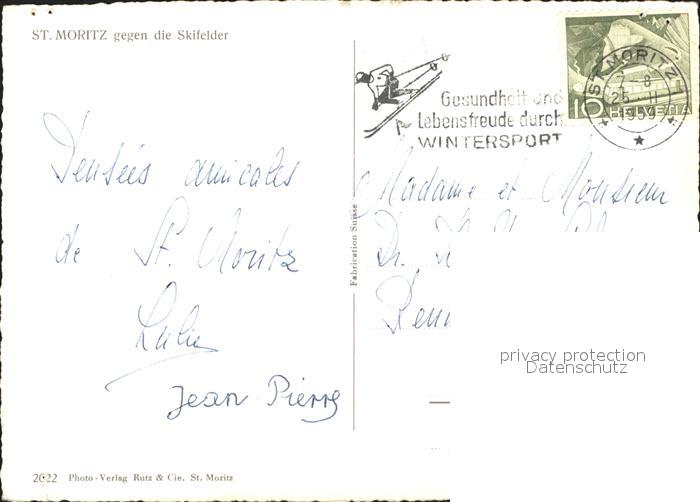 ST. MORITZ gegen die Skifelder
Gesundheit und
Lebensfreude durch
WINTERSPORT
ST. MORITZ 1
7-8
25. II
1959
10 HELVETIA
Pensées amicales
de St. Moritz
Jean-Pierre
Madame et Monsieur
Dr.
Fabrication Suisse
privacy protection
Datenschutz
2022 Photo-Verlag Rutz & Cie. St. Moritz